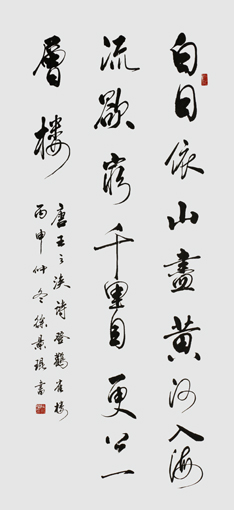 白日依山盡黄河入海
流欲窮千里目更上一
層樓
唐王之涣詩登鸛雀樓
丙申仲冬徐景琨書